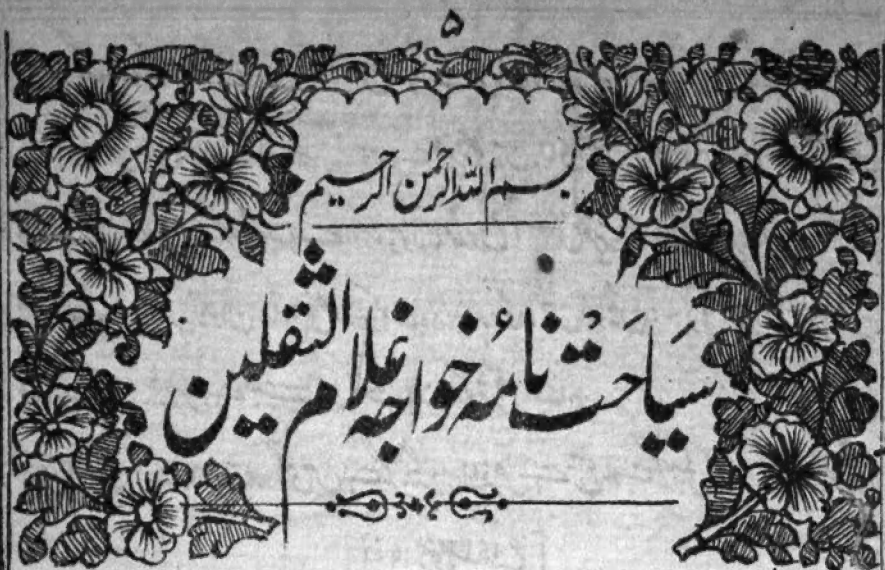 ۵
بسم اللہ الرحمٰن الرحیم
سَیاحَت نامۂ خواجہ غلام الثقلین